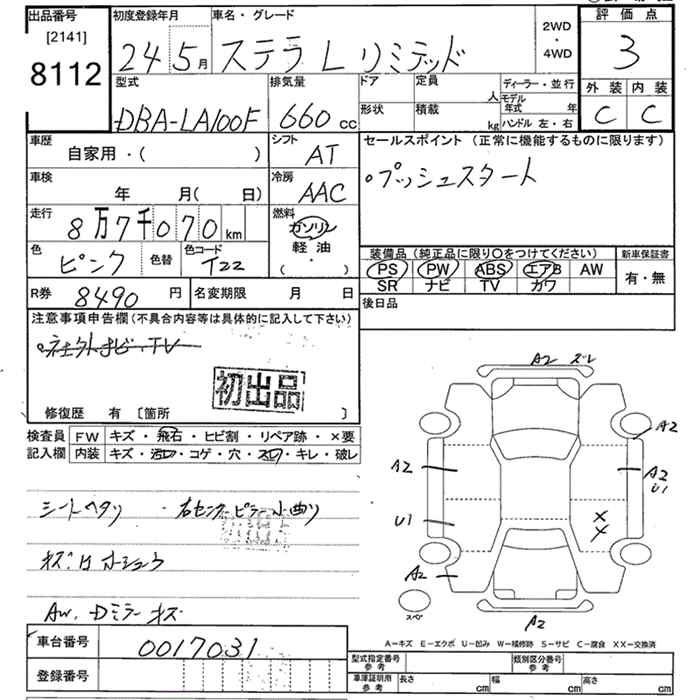 出品番号
[2141]
8112
初度登録年月
24 5月
車名・グレード
ステラ L リミテッド
2WD
・
4WD
評価点
3
外装 内装
C C
型式
DBA-LA100F
排気量
660 cc
ドア
定員
人
形状
積載
kg
ディーラー・並行
モデル年式 年
ハンドル 左・右
車歴
自家用・( )
シフト
AT
車検
年 月( 日)
冷房
AAC
走行
8万7千070 km
燃料
ガソリン
軽油
( ・ )
色
ピンク
色替
色コード
T22
セールスポイント (正常に機能するものに限ります)
。プッシュスタート
装備品(純正品に限り〇をつけてください)
PS PW ABS エアB AW
SR ナビ TV カワ
新車保証書
有・無
R券
8490 円
名変期限 月 日
後日品
注意事項申告欄(不具合内容等は具体的に記入して下さい)
ナビ、TV
初出品
修復歴 有 [箇所 ]
検査員
記入欄
FW キズ・飛石・ヒビ割・リペア跡・×要
内装 キズ・汚レ・コゲ・穴・スレ・キレ・破レ
シートヘタリ ・右センターピラー小曲リ
AW、Dミラーキズ
A2 ズレ
A2
A2
A2
U1
U1
A2
A2
スペ
A-キズ E-エクボ U-凹み W-補修跡 S-サビ C-腐食 XX-交換済
車台番号
0017031
登録番号
型式指定番号
参考
類別区分番号
参考
車庫証明用
参考
長さ cm
幅 cm
高さ cm